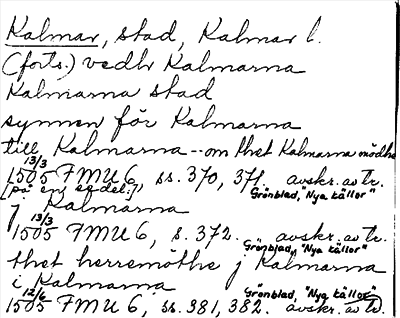 Kalmar, stad, Kalmar l.
(forts.) vedh Kalmarna
Kalmarna stad
synnen för Kalmarna
till Kalmarna -- om thet Kalmarna mödhe
13/3
1505 FMU 6, ss. 370, 371. avskr. av tr.
[på en sedel:] Grönblad, "Nya källor"
j Kalmarna
13/3
1505 FMU 6, s. 372. avskr. av tr.
Grönblad, "Nya källor"
thet herremöthe j Kalmarna
i Kalmarna
12/6 Grönblad, "Nya källor"
1505 FMU 6, ss. 381, 382. avskr. av tr.